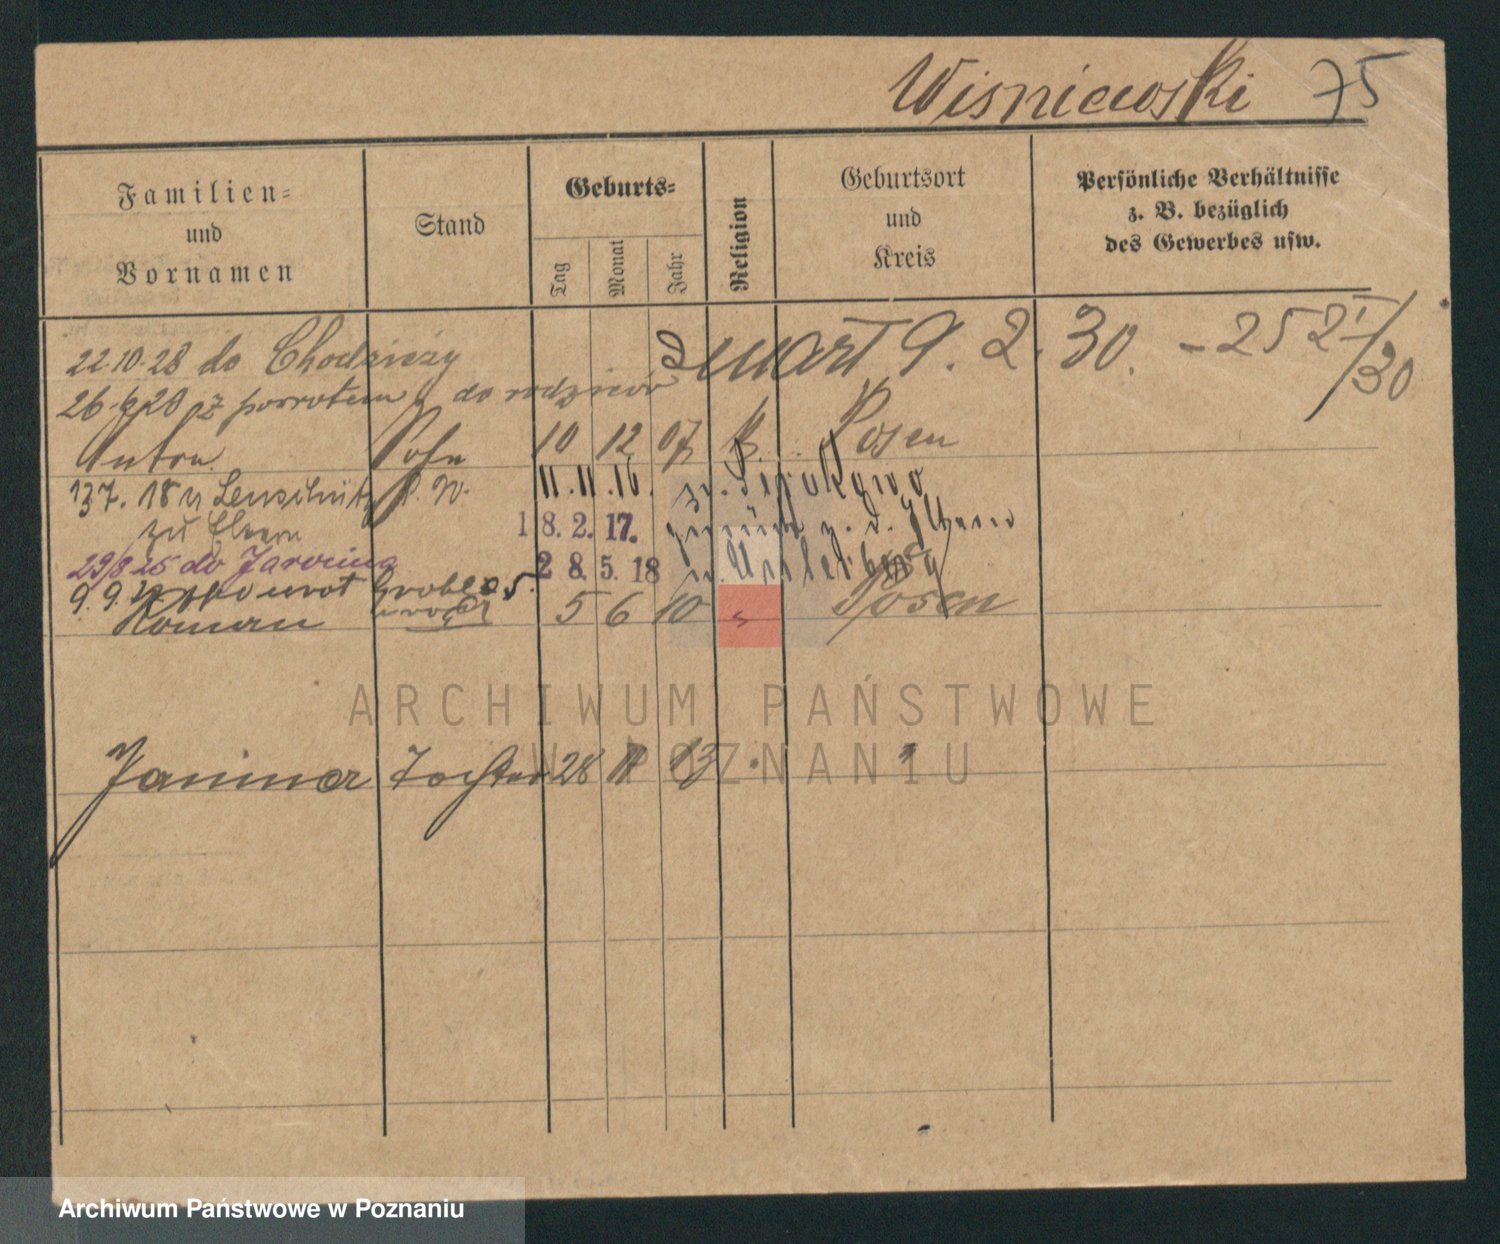 Wisniewski 75
Familien=
und
Vornamen
Stand
Geburts=
Tag
Monat
Jahr
Religion
Geburtsort
und
Kreis
Persönliche Verhältnisse
z. B. bezüglich
des Gewerbes usw.
22.10.28 do Chodzieży
zmarł 9. 2. 30. - 252 I/30
z powrotem do rodziców
Anton Sohn 10 12 07 k. Posen
137. 18 n
11.11.16.
zu Eltern
18.2.17. zurück z. d. Eltern
29/8 25 do Jarocina
28.5.18
9.9. Grobla 5.
Roman 5 6 10 " Posen
Janina Tochter 28 11 13
ARCHIWUM PAŃSTWOWE
W POZNANIU
Archiwum Państwowe w Poznaniu